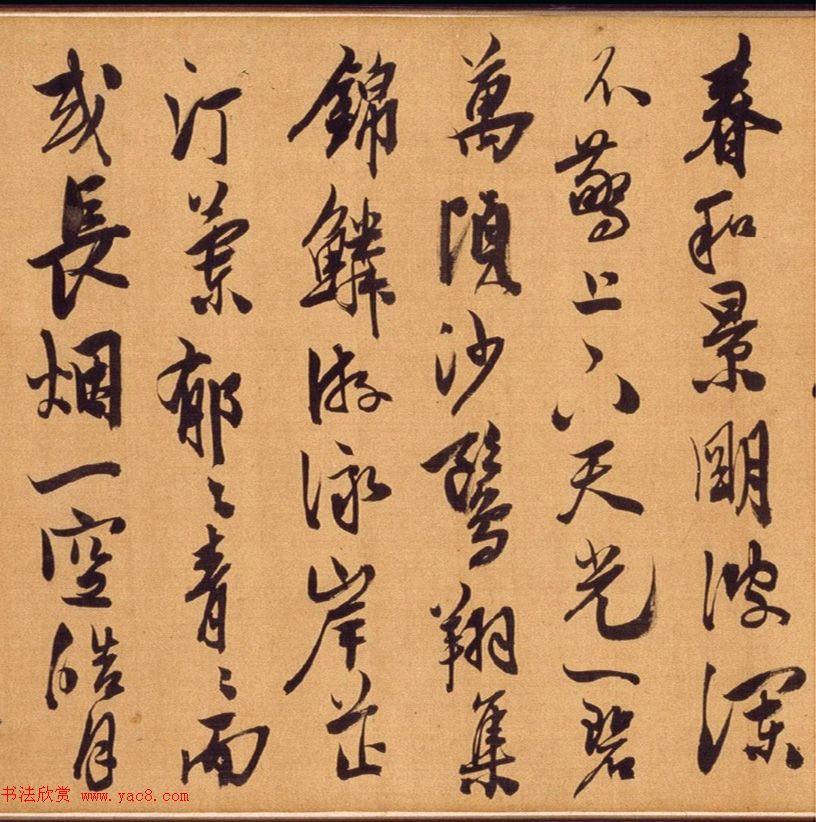 春和景明波瀾
不驚上下天光一碧
萬頃沙鷗翔集
錦鱗游泳岸芷
汀蘭郁々青々而
或長烟一空皓月
书法欣赏 www.yac8.com